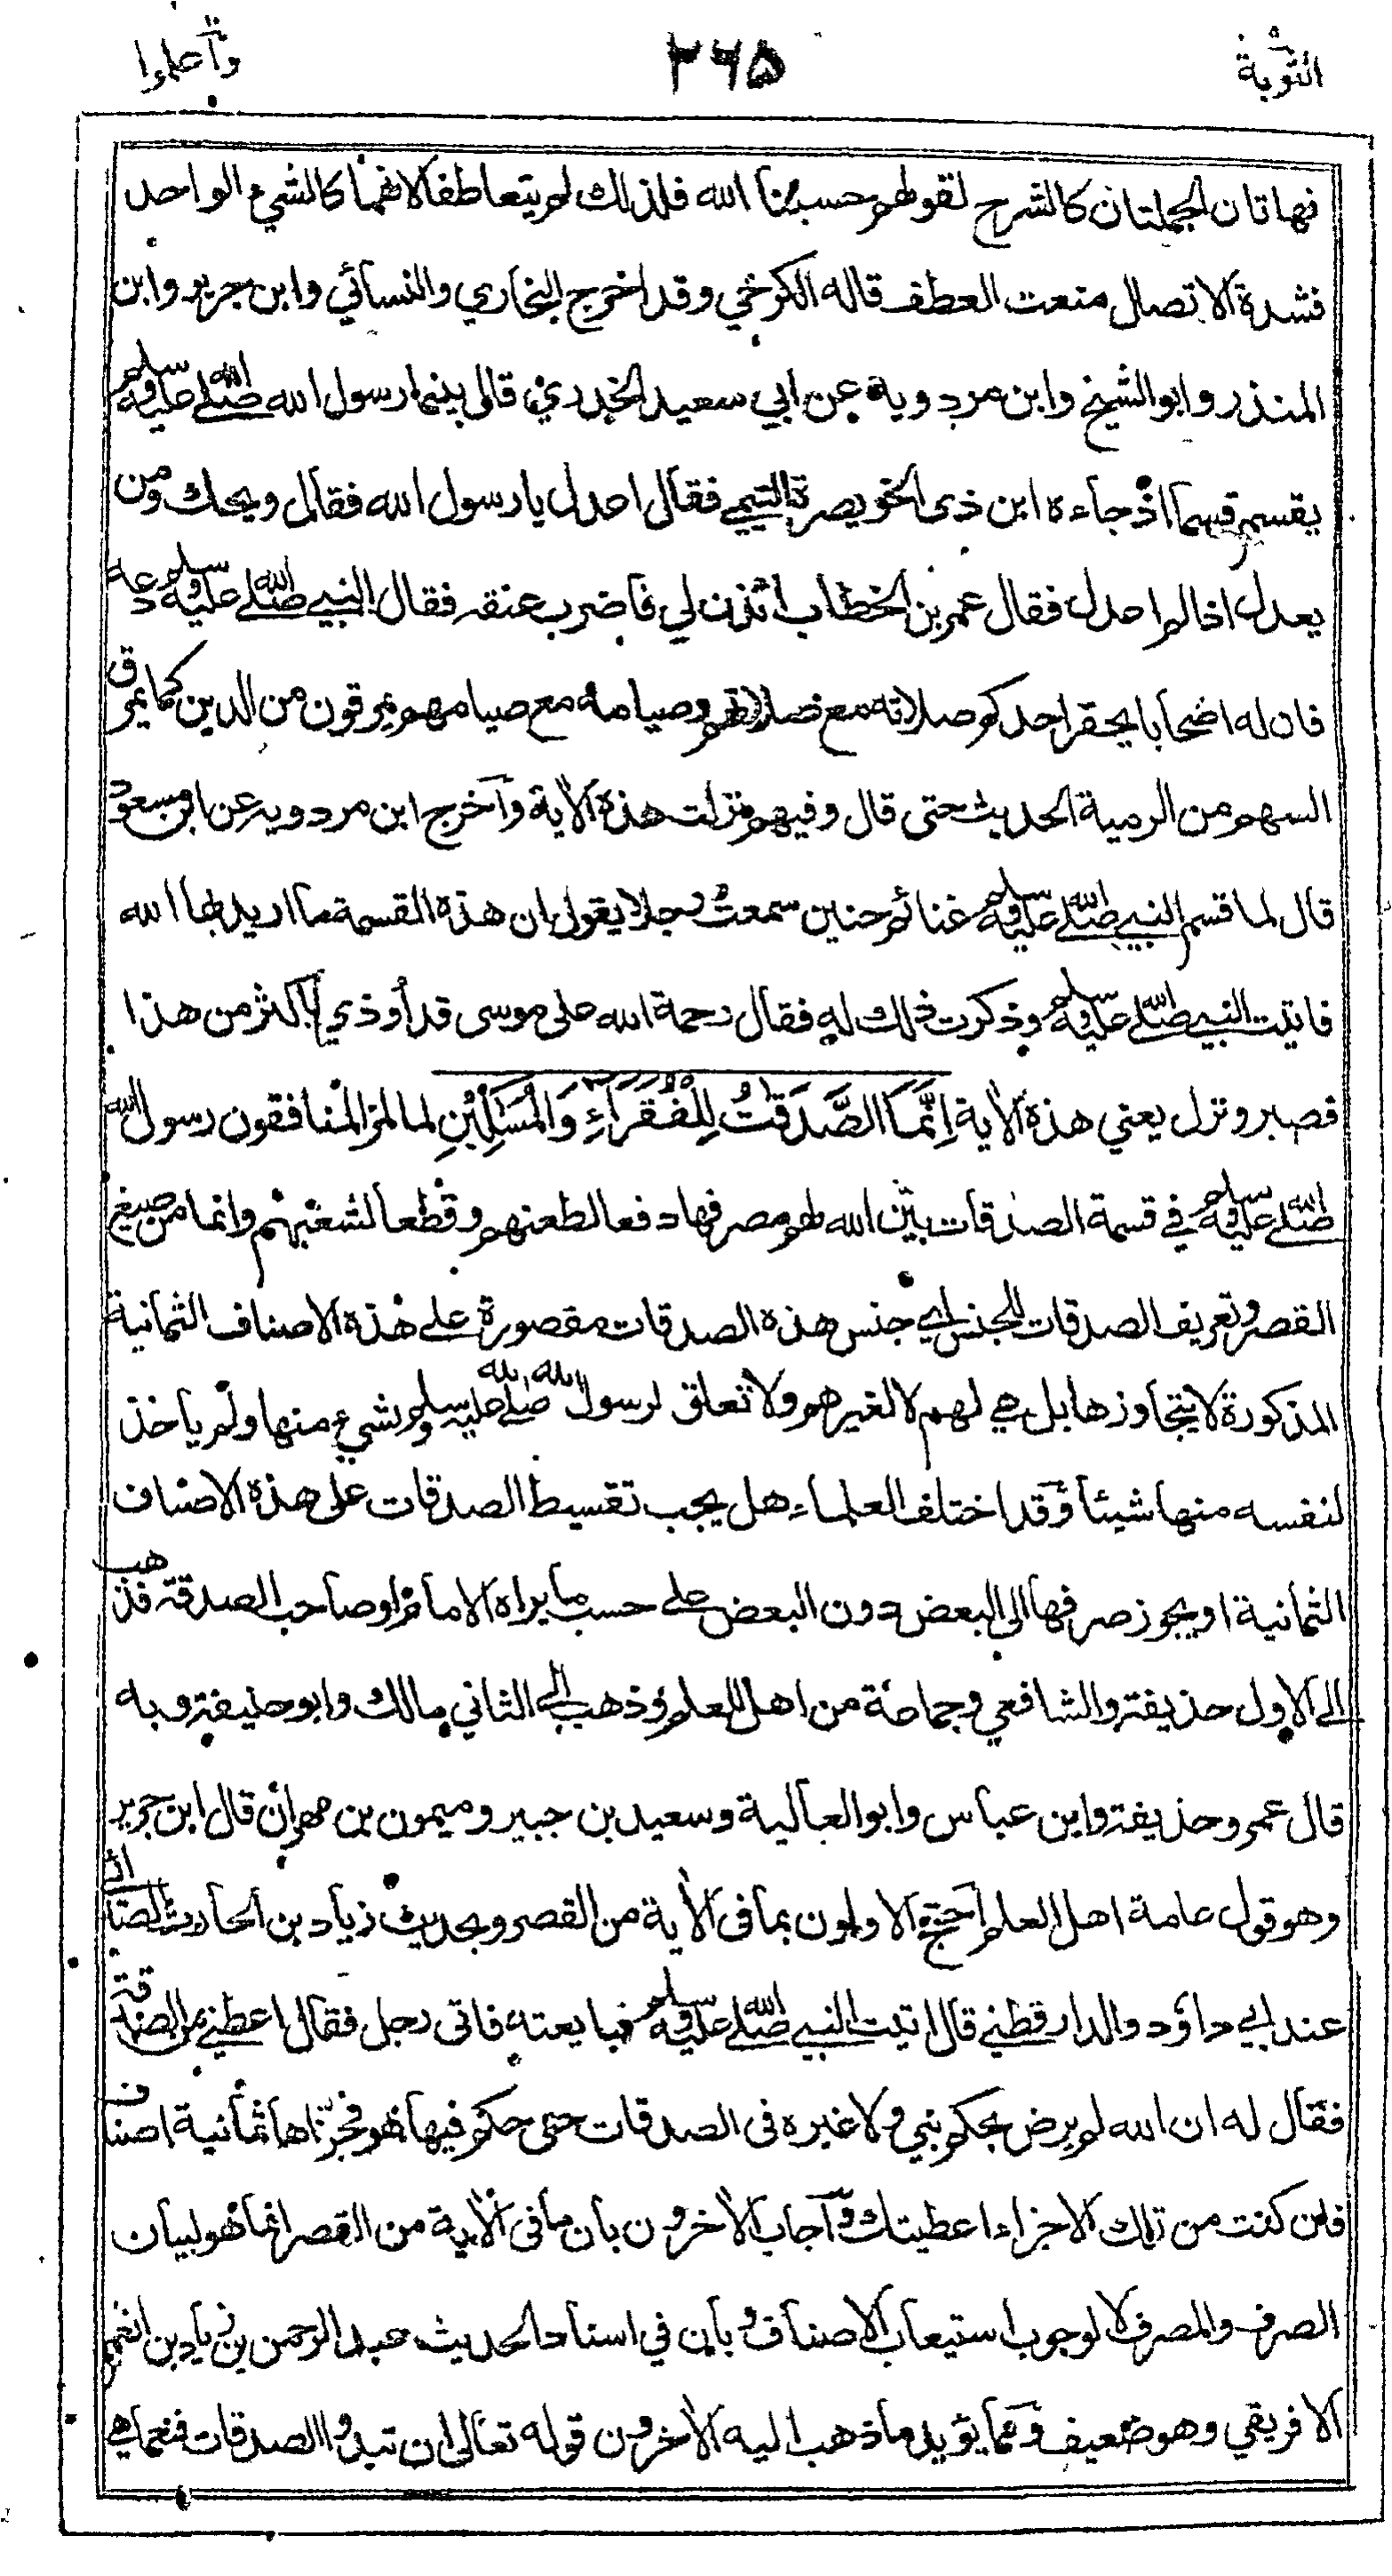 التوبة
٢٦٥
واعلموا
فهاتان الجملتان كالشرح لقولهم حسبنا الله فلذلك لم يتعاطفا لانهما كالشيء الواحد
فشدة الاتصال منعت العطف قاله الكرخي وقد اخرج البخاري والنسائي وابن جرير وابن
المنذر وابو الشيخ وابن مردويه عن ابي سعيد الخدري قال بينما رسول الله صلى الله عليه وسلم
يقسم قسما اذ جاءه ابن ذي الخويصرة التيمي فقال اعدل يا رسول الله فقال ويحك ومن
يعدل اذا لم اعدل فقال عمر بن الخطاب ائذن لي فاضرب عنقه فقال النبي صلى الله عليه وسلم دعه
فان له اصحابا يحقر احدكم صلاته مع صلاتهم وصيامه مع صيامهم يمرقون من الدين كما يمرق
السهم من الرمية الحديث حتى قال وفيهم نزلت هذه الآية وآخرج ابن مردويه عن ابن مسعود
قال لما قسم النبي صلى الله عليه وسلم غنائم حنين سمعت رجلا يقول ان هذه القسمة ما اريد بها الله
فاتيت النبي صلى الله عليه وسلم وذكرت ذلك له فقال رحمة الله على موسى قد أوذي باكثر من هذا
فصبر ونزل يعني هذه الآية اِنَّمَا الصَّدَقٰتُ لِلْفُقَرَآءِ وَالْمَسٰكِيْنِ لما لمز المنافقون رسول الله
صلى الله عليه وسلم في قسمة الصدقات بيّن الله لهم مصرفها دفعا لطعنهم وقطعا لشغبهم وانما من صيغ
القصر وتعريف الصدقات للجنس اي جنس هذه الصدقات مقصورة على هذه الاصناف الثمانية
المذكورة لا يتجاوزها بل هي لهم لا لغيرهم ولا تعلق لرسول الله صلى الله عليه وسلم بشيء منها ولم ياخذ
لنفسه منها شيئا وقد اختلف العلماء هل يجب تقسيط الصدقات على هذه الاصناف
الثمانية او يجوز صرفها الى البعض دون البعض على حسب ما يراه الامام او صاحب الصدقة فذهب
الى الاول حذيفة والشافعي وجماعة من اهل العلم وذهب الى الثاني مالك وابو حنيفة وبه
قال عمر وحذيفة وابن عباس وابو العالية وسعيد بن جبير وميمون بن مهران قال ابن جرير
وهو قول عامة اهل العلم احتج الاولون بما في الآية من القصر وبحديث زياد بن الحارث الصدائي
عند ابي داؤد والدارقطني قال اتيت النبي صلى الله عليه وسلم فبايعته فاتى رجل فقال اعطني من الصدقة
فقال له ان الله لم يرض بحكم نبي ولا غيره في الصدقات حتى حكم فيها هو فجزّاها ثمانية اصناف
فان كنت من تلك الاجزاء اعطيتك وآجاب الآخرون بان ما في الآية من القصر انما هو لبيان
الصرف والمصرف لا لوجوب استيعاب الاصناف وبان في اسناد الحديث عبد الرحمن بن زياد بن انعم
الافريقي وهو ضعيف ومما يؤيد ما ذهب اليه الآخرون قوله تعالى ان تبدوا الصدقات فنعما هي